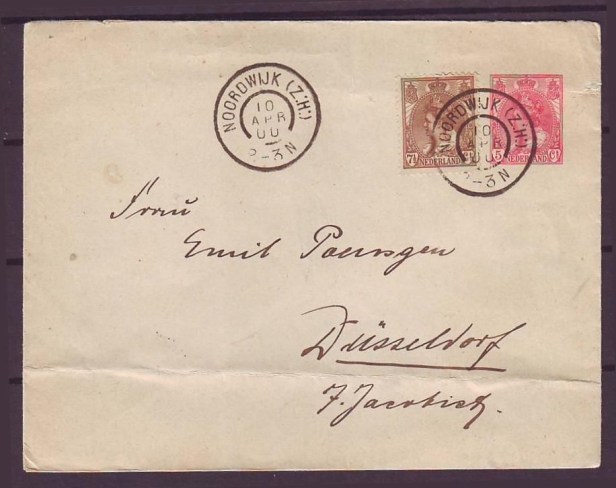 NOORDWIJK (Z:H:)
10
APR
00
2-3N
7½
NEDERLAND
NOORDWIJK (Z:H:)
10
APR
00
2-3N
5 Ct
NEDERLAND
Frau
Emil Poensgen
Düsseldorf
7. Jacobistr.